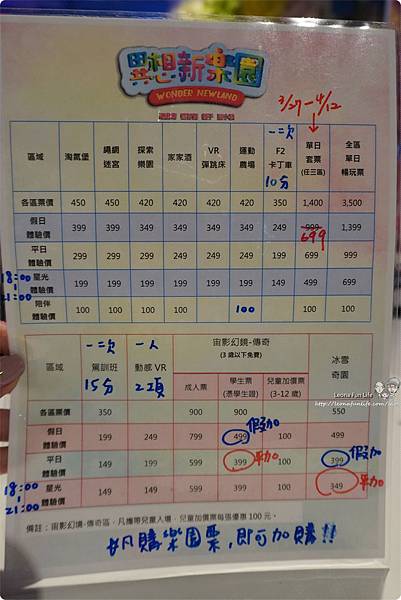 異想新樂園
WONDER NEWLAND
3/27-4/12
一=次
10分
區域 淘氣堡 繩網迷宮 探索樂園 家家酒 VR彈跳床 運動農場 F2卡丁車 單日套票(任三區) 全區單日暢玩票
各區票價 450 420 420 420 420 420 350 1,400 3,500
假日體驗價 399 399 349 349 349 349 249 999 699 1,399
平日體驗價 299 299 249 249 249 249 199 699 999
18:00
|
21:00
星光體驗價 199 199 199 199 199 199 149 499 699
陪伴體驗價 100 100 100 100 100 100 100
一次
15分
一人
2項
區域 駕訓班 動感VR 宙影幻鏡-傳奇 (3歲以下免費) 冰雪奇園
成人票 學生票(憑學生證) 兒童加價票(3-12歲)
各區票價 350 900 900 550
假日體驗價 199 249 799 499 假加 100 499
平日體驗價 149 199 599 399 平加 100 399 假加
18:00
|
21:00
星光體驗價 149 149 599 399 100 349 平加
備註:宙影幻鏡-傳奇區,凡攜帶兒童入場,兒童加價票每張優惠100元。
#凡購樂園票,即可加購!!
Leona Fun Life